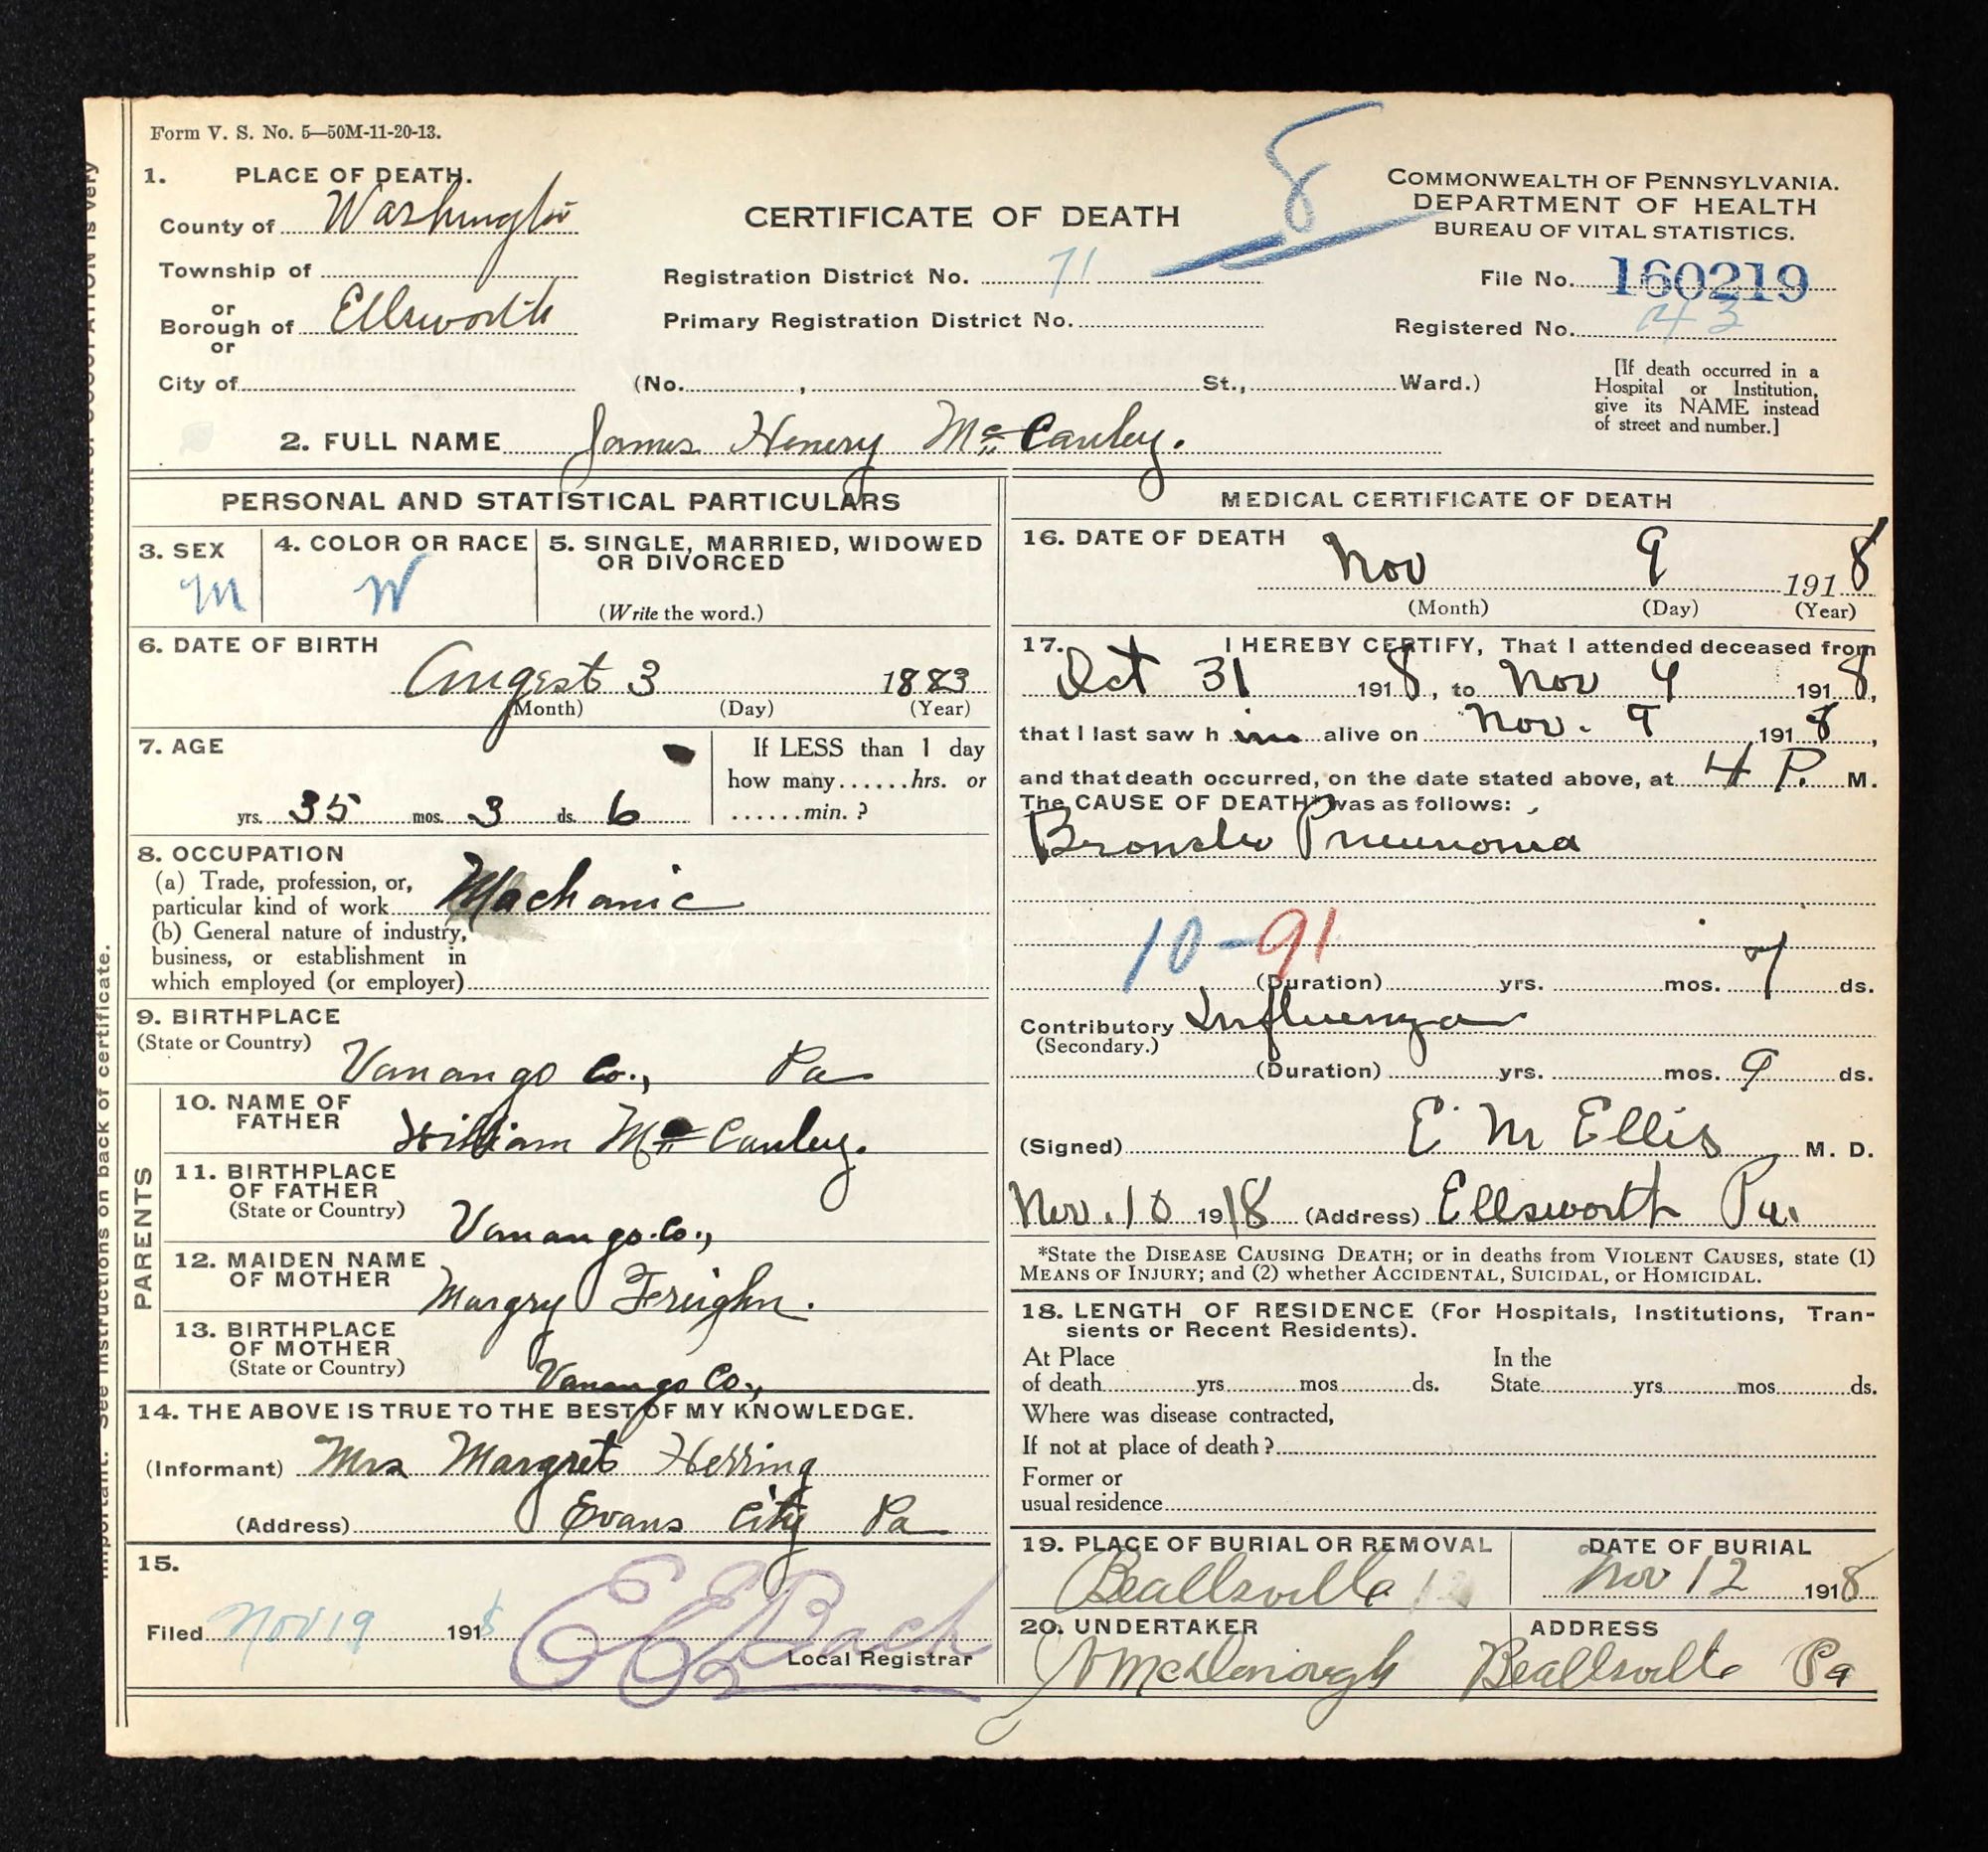 Form V. S. No. 5—50M-11-20-13.
1. PLACE OF DEATH.
County of Washington
Township of
or
Borough of Ellsworth
or
City of
CERTIFICATE OF DEATH
Registration District No. 71
Primary Registration District No.
(No. , St., Ward.)
8
COMMONWEALTH OF PENNSYLVANIA.
DEPARTMENT OF HEALTH
BUREAU OF VITAL STATISTICS.
File No. 160219
Registered No. 43
[If death occurred in a
Hospital or Institution,
give its NAME instead
of street and number.]
2. FULL NAME James Henery Mc Cauley.
PERSONAL AND STATISTICAL PARTICULARS
3. SEX
M
4. COLOR OR RACE
W
5. SINGLE, MARRIED, WIDOWED
OR DIVORCED
(Write the word.)
6. DATE OF BIRTH
Augest 3 1883
(Month) (Day) (Year)
7. AGE
yrs. 35 mos. 3 ds. 6
If LESS than 1 day
how many ......hrs. or
......min. ?
8. OCCUPATION
(a) Trade, profession, or,
particular kind of work Machanic
(b) General nature of industry,
business, or establishment in
which employed (or employer)
9. BIRTHPLACE
(State or Country)
Vanango Co., Pa
PARENTS
10. NAME OF
FATHER
William Mc Cauley.
11. BIRTHPLACE
OF FATHER
(State or Country)
Vanango.Co.,
12. MAIDEN NAME
OF MOTHER
Margry
13. BIRTHPLACE
OF MOTHER
(State or Country)
Vanango Co.,
14. THE ABOVE IS TRUE TO THE BEST OF MY KNOWLEDGE.
(Informant) Mrs Margret Herring
(Address) Evans City Pa
15.
Filed Nov 19 1918
E E Bach
Local Registrar
MEDICAL CERTIFICATE OF DEATH
16. DATE OF DEATH
Nov 9 1918
(Month) (Day) (Year)
17. I HEREBY CERTIFY, That I attended deceased from
Oct 31 1918, to Nov 9 1918,
that I last saw h im alive on Nov. 9 1918,
and that death occurred, on the date stated above, at 4 P. M.
The CAUSE OF DEATH* was as follows:
Broncho Pneumonia
10-91
(Duration) yrs. mos. 7 ds.
Contributory Influenza
(Secondary.)
(Duration) yrs. mos. 9 ds.
(Signed) E M Ellis M. D.
Nov. 10 1918 (Address) Ellsworth Pa.
*State the DISEASE CAUSING DEATH; or in deaths from VIOLENT CAUSES, state (1)
MEANS OF INJURY; and (2) whether ACCIDENTAL, SUICIDAL, or HOMICIDAL.
18. LENGTH OF RESIDENCE (For Hospitals, Institutions, Tran-
sients or Recent Residents).
At Place In the
of death yrs mos ds. State yrs mos ds.
Where was disease contracted,
If not at place of death?
Former or
usual residence
19. PLACE OF BURIAL OR REMOVAL
Beallsville
DATE OF BURIAL
Nov 12 1918
20. UNDERTAKER ADDRESS
McDonough Beallsville Pa
important. See instructions on back of certificate.